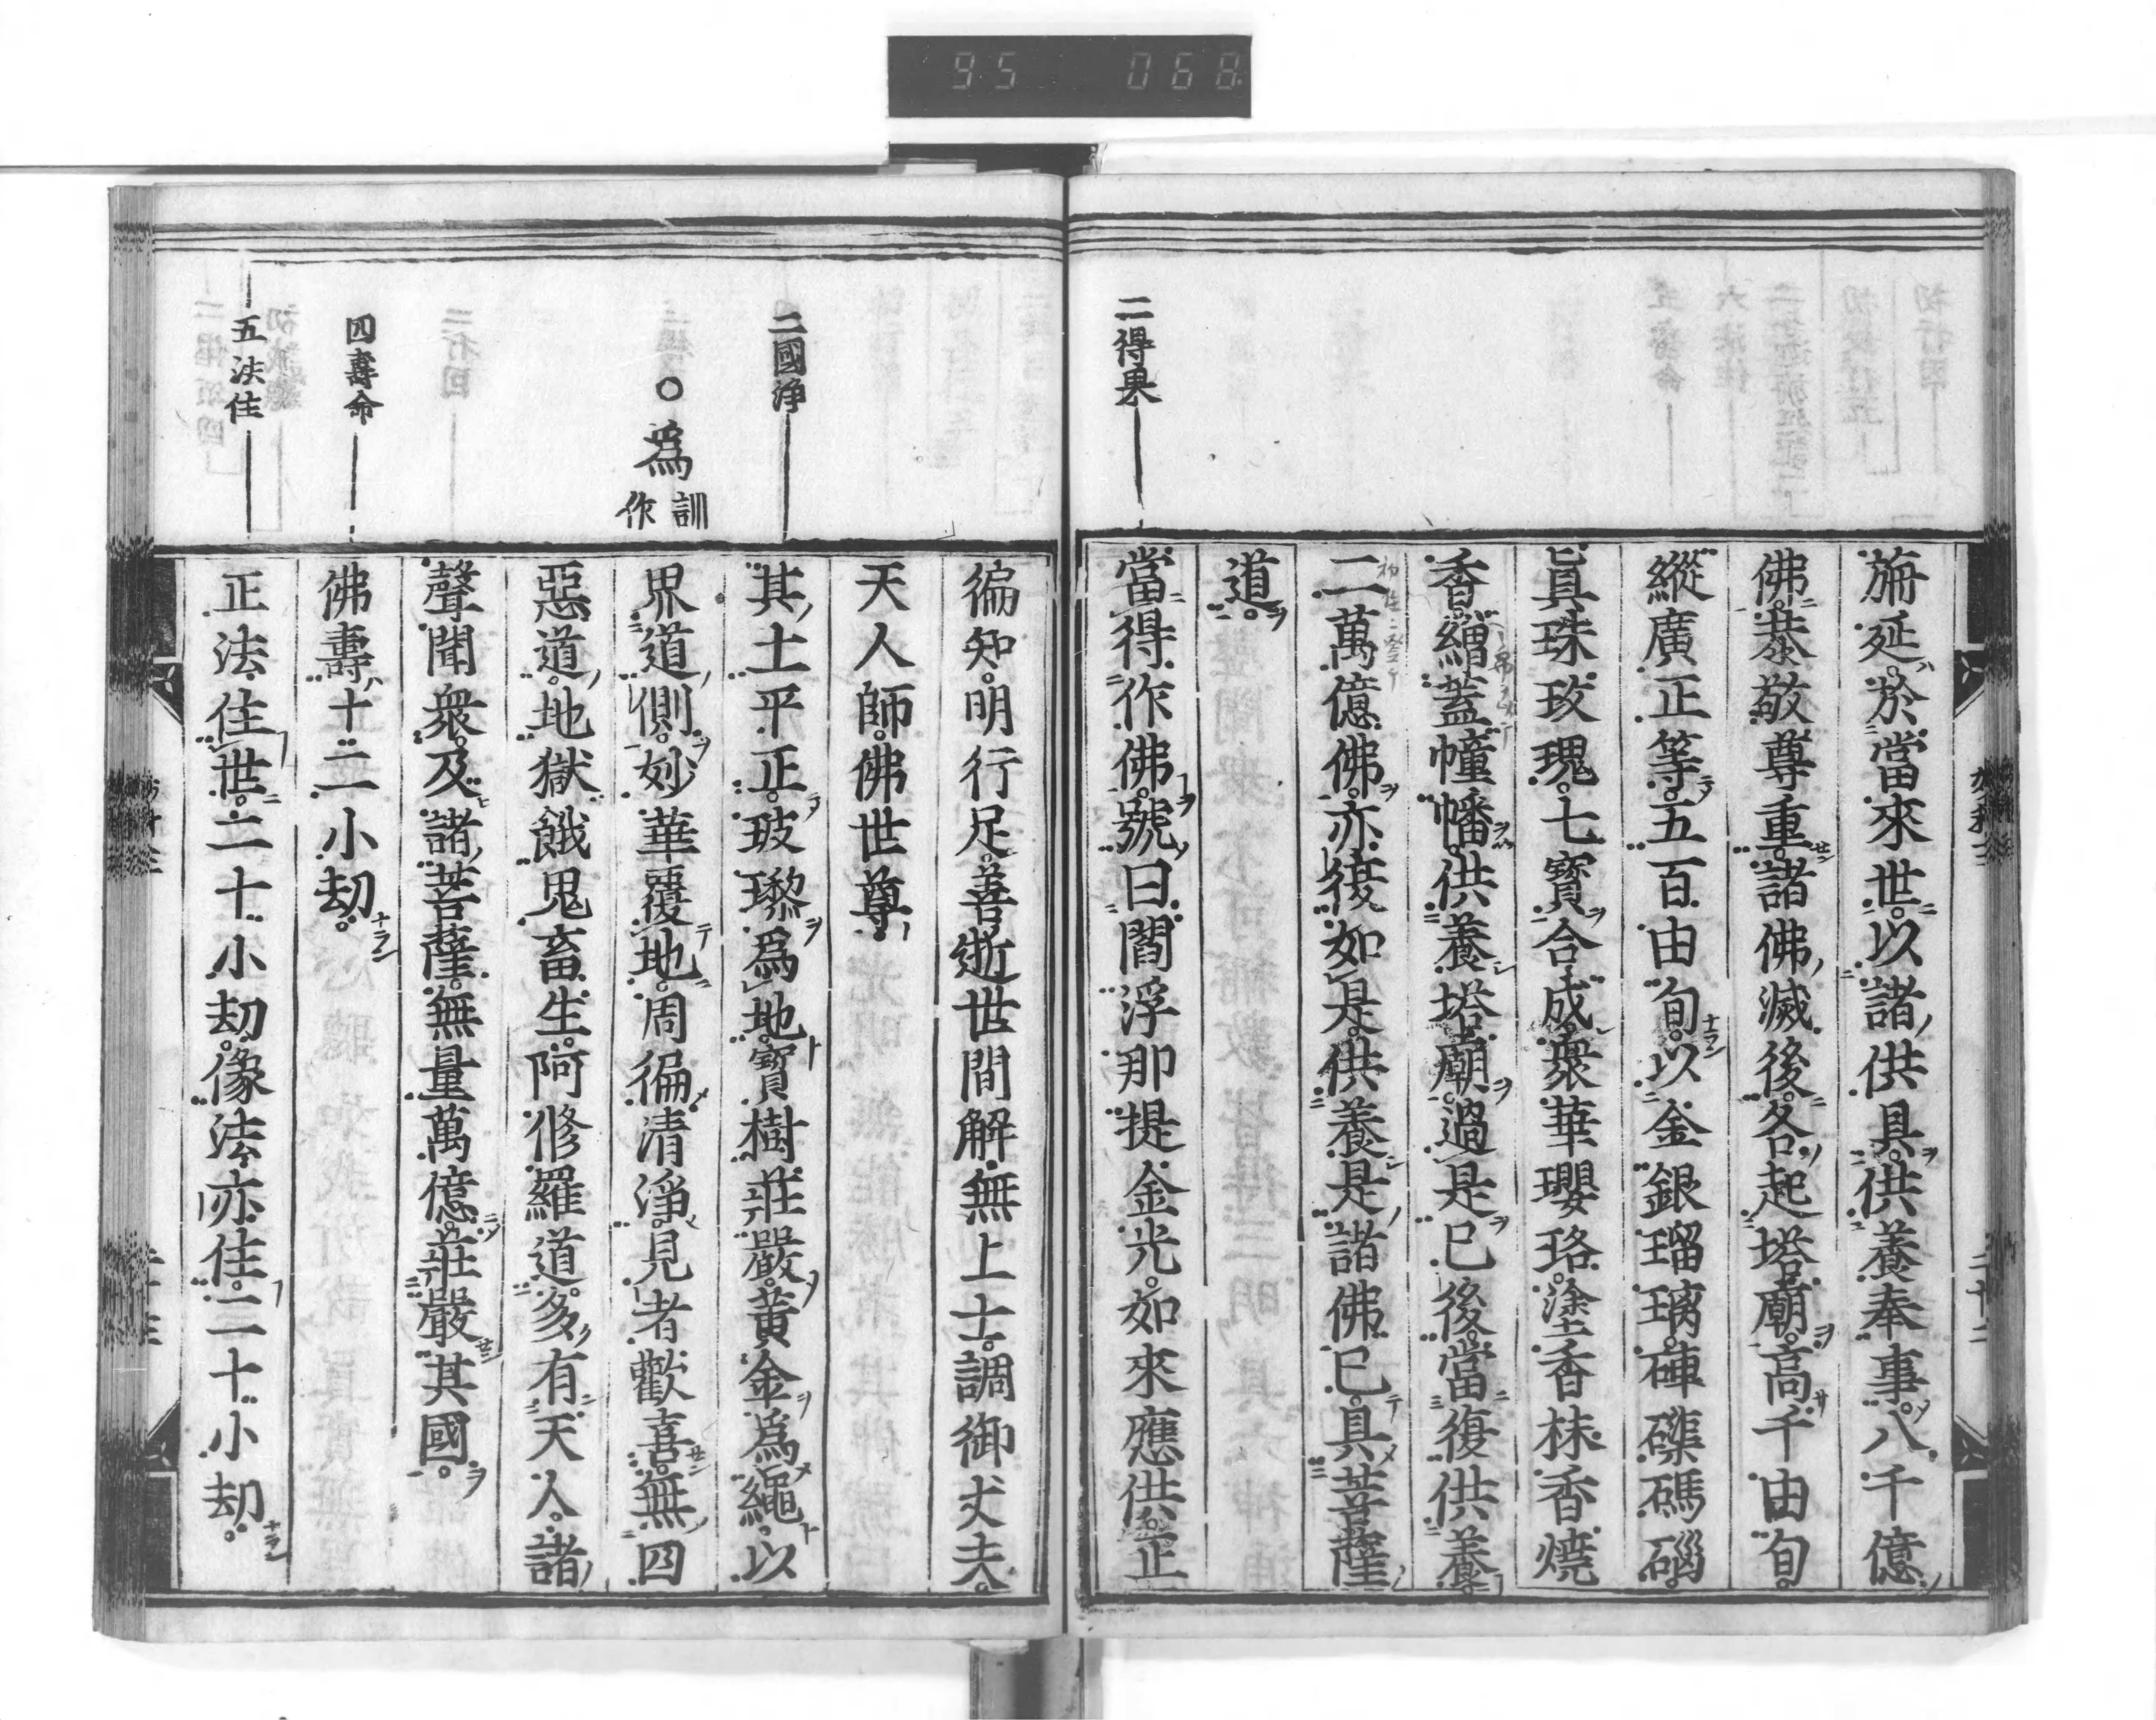 95 068
二得果
旃延於當來世以諸供具供養奉事八千億
佛恭敬尊重諸佛滅後各起塔廟高千由旬
縱廣正等五百由旬以金銀瑠璃硨磲碼碯
眞珠玫瑰七寳合成衆華瓔珞塗香抹香燒
香繒葢幢幡供養塔廟過是已後當復供養
二萬億佛亦復如是供養是諸佛已具菩薩
道
當得作佛號曰閻浮那提金光如來應供正
二國淨
○爲 訓作
四壽命
五法住
徧知明行足善逝世間解無上士調御丈夫
天人師佛世尊
其土平正玻瓈爲地寳樹莊嚴黃金爲繩以
界道側妙華覆地周徧清淨見者歡喜無四
惡道地獄餓鬼畜生阿修羅道多有天人諸
聲聞衆及諸菩薩無量萬億莊嚴其國
佛壽十二小劫
正法住世二十小劫像法亦住二十小劫